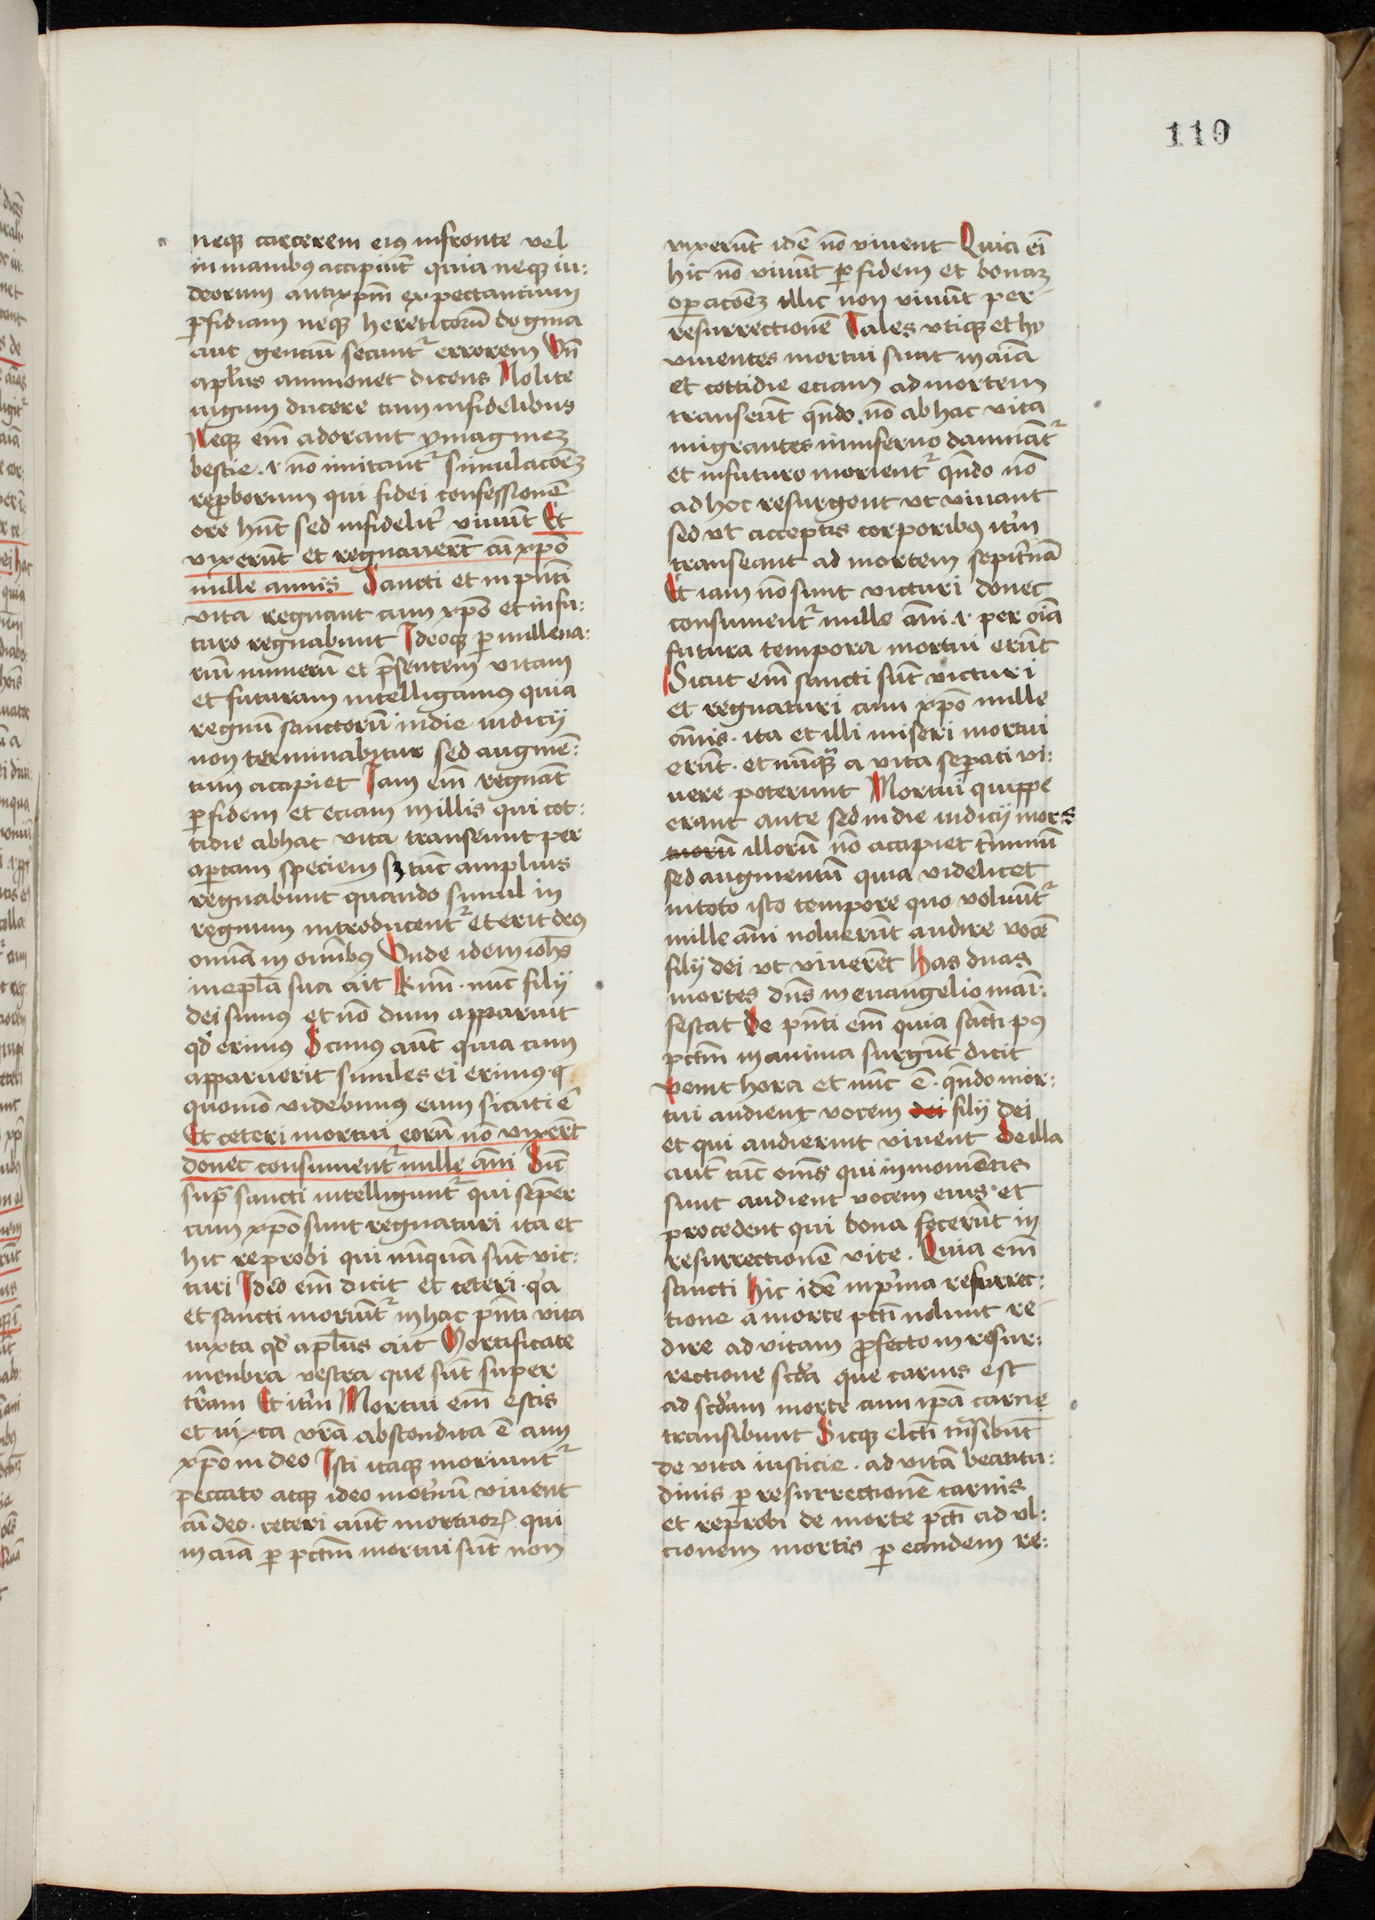 110
neqꝫ carcerem eiꝰ in fronte vel
in manibꝰ accipiu͂t quia neqꝫ iu⸗
deorum antixp̄m expectancium
ꝑfidiam neqꝫ hereticorū dogma
aut genciū secunt᷑ errorem Vn̄
apl̄us ammonet dicens Nolite
iugum ducere cum infidelibus
Neqꝫ em̄ adorant ymaginem
bestie · ⁊ nō imitant᷑ simulacōem
reꝓborum qui fidei confessionē
ore hn̄t sed infidelit᷑ viuūt Et
vixerūt et regnauer̄t cū xp̄o
mille annis Sancti et in pn̄ti
vita regnant cum xp̄o et in fu⸗
turo regnabunt Ideoqꝫ ꝑ millena⸗
riū numerū et p̄sentem vitam
et futuram intelligamus quia
regnū sanctorū in die iudicij
non terminabitur sed augmen⸗
tum accipiet Iam em̄ regnāt
ꝑ fidem et eciam in illis qui cot⸗
tidie ab hac vita transeunt per
aꝑtam speciem sꝫ tūc amplius
regnabunt quando simul in
regnum introducent᷑ et erit deꝰ
omīa in omībꝰ Vnde idem ioh̄s
in epl̄a sua ait Km̄i · nūc filij
dei sumus et nō dum apparuit
qd̄ erimus Scimus aūt quia cum
apparuerit similes ei erimus · q
quoniō videbimus eum sicuti ē
Et ceteri mortui eorū nō vixer̄t
donec consument᷑ mille an̄i Sic̄
sup̄ sancti intelligunt᷑ qui semꝑ
cum xp̄o sunt regnaturi ita et
hic reprobi qui nūquā sūt vic⸗
turi Ideo em̄ dicit et ceteri · qͣ
et sancti moriūt᷑ in hac pn̄ti vita
iuxta qd̄ apl̄us ait Mortificate
menbra vestra que sūt super
t᷑ram Et it᷑m Mortui em̄ estis
et uixta vr̄a abscondita ē cum
xp̄o in deo Isti itaqꝫ moriunt᷑
peccato atqꝫ ideo inet᷑nū viuent
cū deo · ceteri aūt mortuoꝝ qui
in aīa ꝑ pctm̄ mortui sūt non
vixerūt idē nō viuent Quia em̄
hic nō viuūt ꝑ fidem et bonam
oꝑacōem illic non viuūt per
resurrectionē Tales vtiqꝫ et hij
viuentes mortui sunt in aīa
et cottidie eciam ad mortem
transeūt qn̄do · nō ab hac vita
migrantes in inferno damnāt᷑
et in futuro morient᷑ qn̄do nō
ad hoc resurgent vt viuant
sed vt acceptis corporibus it᷑m
transeant ad mortem sempit᷑nā
Et iam nō sunt victuri donec
consument᷑ mille an̄i · ⁊ per oīa
futura tempora mortui erūt
Sicut em̄ sancti sūt victuri
et regnaturi cum xp̄o mille
an̄is · ita et illi miseri mortui
erūt · et nūqͣ a vita seꝑati vi⸗
uere poterunt Mortui quippe
erant ante sed in die iudicij mors
tuorū illorū nō accipiet t᷑minū
sed augmentū quia videlicet
in toto isto tempore quo voluūt᷑
mille an̄i noluerūt audire vocē
filij dei vt viuerēt Has duas
mortes dn̄s in euangelio mani⸗
festat De pn̄ti em̄ quia sancti pꝰ
pctm̄ in anima surgūt dicit
Venit hora et nūc ē · qn̄do mor⸗
tui audient vocem dei filij dei
et qui audierint viuent De illa
aūt tūc om̄s qui in monētis
sunt audient vocem eius · et
procedent qui bona fecerūt in
resurrectionē vite · Quia em̄
sancti hic idē in p᷑ma resurrec⸗
tione a morte pcti nolunt re⸗
dire ad vitam ꝓfecto in resur⸗
rectione scd̄a que carnis est
ad scd̄am mortē cum ip̄a carne
transibunt Sicqꝫ elc̄ti tn̄sibūt
de vita iusticie · ad vitā beatitu⸗
dinis ꝑ resurrectionē carnis
et reprobi de morte pcti ad vl⸗
cionem mortis ꝑ eandem re⸗